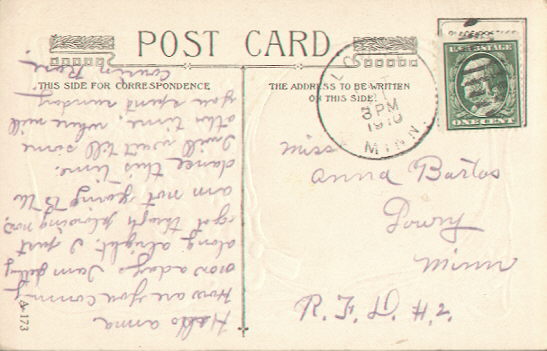 POST CARD
THIS SIDE FOR CORRESPONDENCE
THE ADDRESS TO BE WRITTEN
ON THIS SIDE
U.S. POSTAGE
ONE CENT
3 PM
1910
MINN.
Miss
Anna Bartos
Lowry
Minn
R.F.D. #2.
Hello anna
How are you comming
now a days. I am getting
along alright. I just
got through plowing now,
am not going to the
dance this time
I will wait till some
other time. where will
you spend sunday
Cousin Rose.
A-173